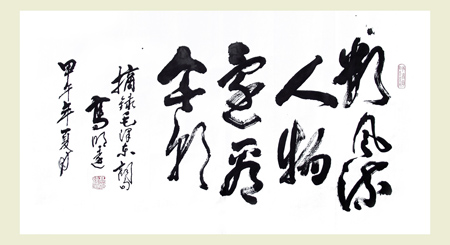 數風流
人物
還看
今朝
摘録毛泽东詞句
高明远
甲午年夏月